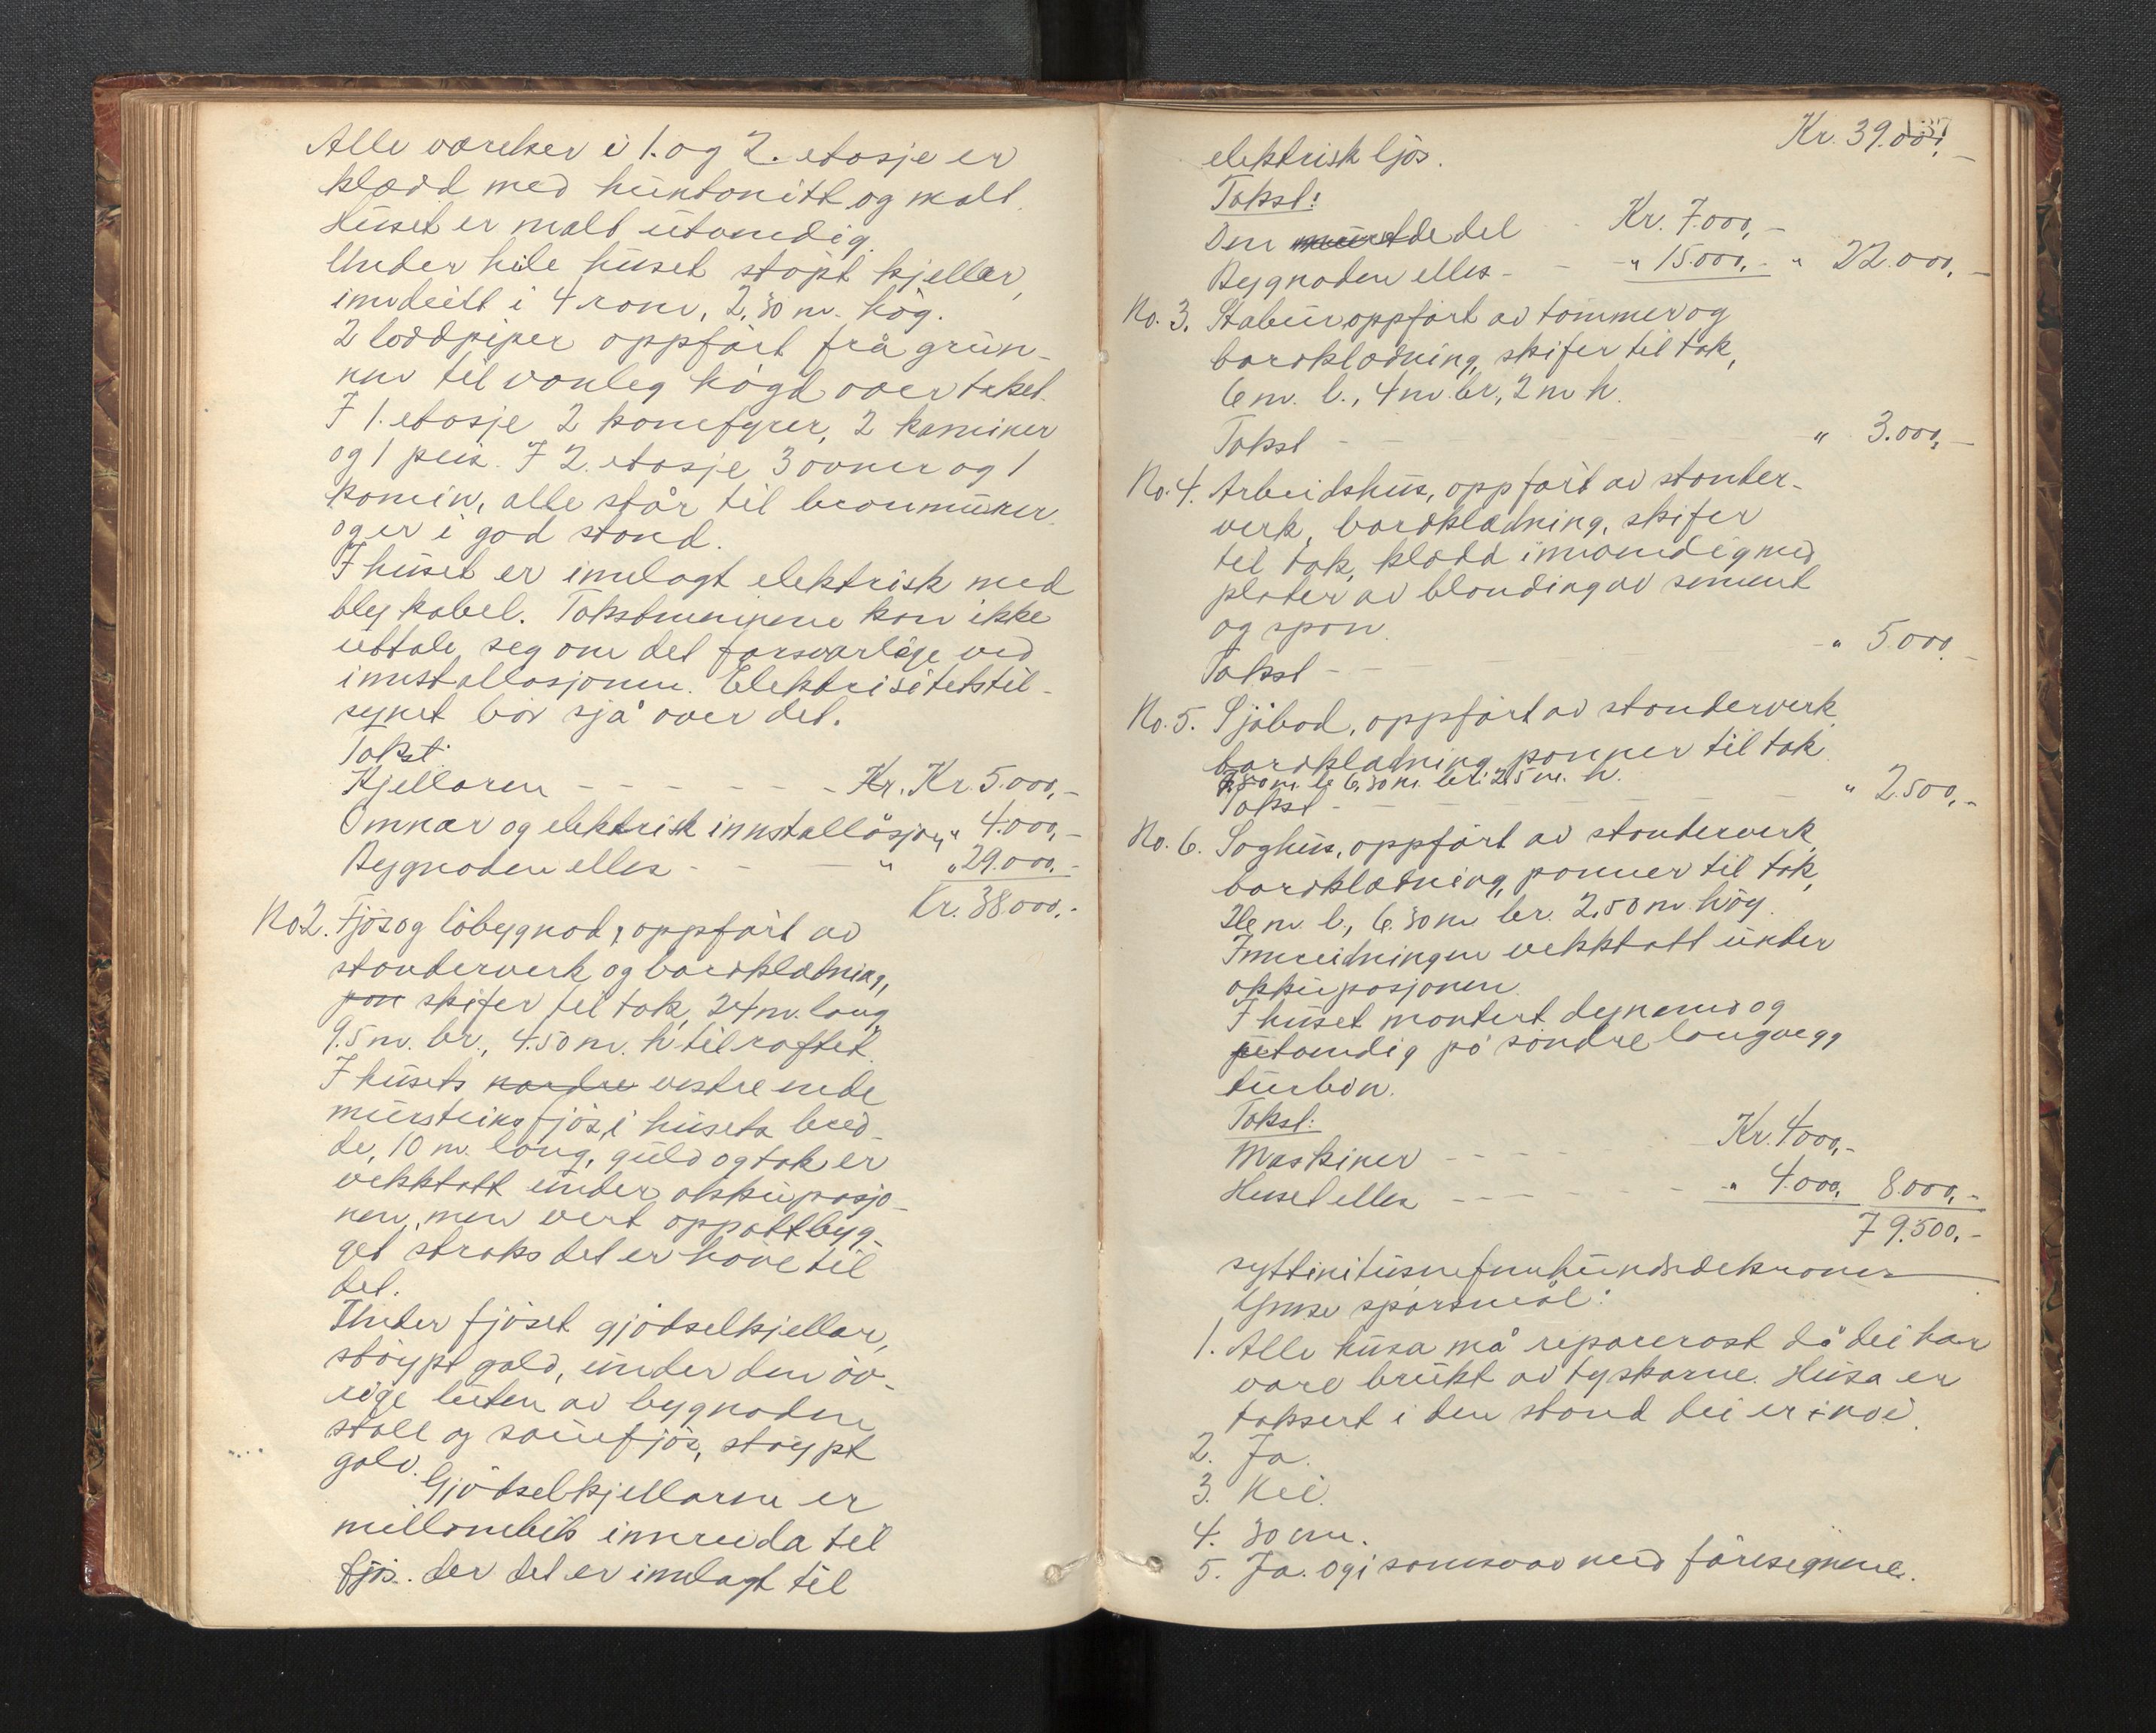 Alle værelser i 1. og 2. etasje er
klædd med huntonitt og malt.
Huset er malt utvendig.
Under hele huset støpt kjellar,
inndeilt i 4 rom, 2,30 m. høg.
2 loddpiper oppført frå grun-
nen til vanleg høgd over taket.
I 1. etasje 2 komfyrer, 2 kaminer
og 1 peis. I 2. etasje 3 ovner og 1
kamin, alle står til branmurer
og er i god stand.
I huset er innlagt elektrisk med
bly kabel. Takstmennene kan ikke
uttale seg om det forsvarlige ved
innstallasjonen. Elektrisitetstil-
synet bør sjå over det.
Takst:
Kjellaren - - - - - - Kr. Kr. 5.000,-
Omnar og elektrisk innstallasjon " 4.000,-
Bygnaden elles - - - " " 29.000,-
Kr. 38.000,-
No 2. Fjøs og løbygnad, oppført av
standerverk og bordklædning,
pan skifer til tak, 24 m. lang
9.5 m. br., 4.50 m. h. til raftet.
I husets nordre vestre ende
mursteins fjøs, i husets bred-
de, 10 m. lang, gulv og tak er
vekktatt under okkupasjo-
nen, men vert oppattbyg-
get straks det er høve til
det.
Under fjøset gjødselkjellar,
støypt golv, under den øv-
rige luten av bygnaden
stall og sauefjøs, støypt
golv. Gjødselkjellaren er
millombils innreida til
fjøs. der det er innlagt til
137
Kr. 39.000,-
elektrisk ljos.
Takst:
Den murte del - Kr. 7.000,-
Bygnaden elles - - - " 15.000,- " 22.000,-
No. 3. Stabur oppført av tømmer og
bordklædning, skifer til tak,
6 m. l., 4 m. br., 2 m. h.
Takst - - - - " 3.000,-
No. 4. Arbeidshus, oppført av stander-
verk, bordklædning, skifer
til tak, klædd innvendig med
plater av blanding av sement
og spon.
Takst - - - - " 5.000.-
No. 5. Sjøbod, oppført av standerverk,
bordklædning, panner til tak.
7.80 m. l. 6.30 m. br. 2.5 m. h.
Takst - - - - " 2.500,-
No. 6. Saghus, oppført av standerverk,
bordklædning, panner til tak,
26 m. l., 6.30 m. br. 2,50 m. høg.
Innreidningen vekktatt under
okkupasjonen.
I huset montert dynamo og
utvendig på søndre langvegg
turbin.
Takst:
Maskiner - - - - Kr. 4000,-
Huset elles - - - - " 4.000, 8.000,-
79.500,-
syttinitusenfemhundredekroner
Ymse spørsmål:
1. Alle husa må reparerast då dei har
vore brukt av tyskarne. Husa er
taksert i den stand dei er i no.
2. Ja.
3. Nei.
4. 30 cm.
5. Ja. og i samsvar med føresegnene.